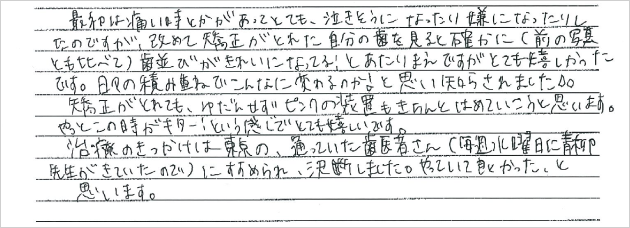 最初は痛い時とかがあってとても、泣きそうになったり嫌になったりし
たのですが、改めて矯正がとれた自分の歯を見ると確かに(前の写真
とも比べて)歯並びがきれいになってる!とあたりまえですがとても嬉しかった
です。日々の積み重ねでこんなに変わるのか!と思い知らされました。
矯正がとれても、ゆだんせずピンクの装置もきちんとはめていこうと思います。
やっとこの時がキター!という感じでとても嬉しいです。
治療のきっかけは東京の、通っていた歯医者さん(毎週火曜日に青柳
先生がきていたので)にすすめられ、決断しました。やっていて良かった、と
思います。